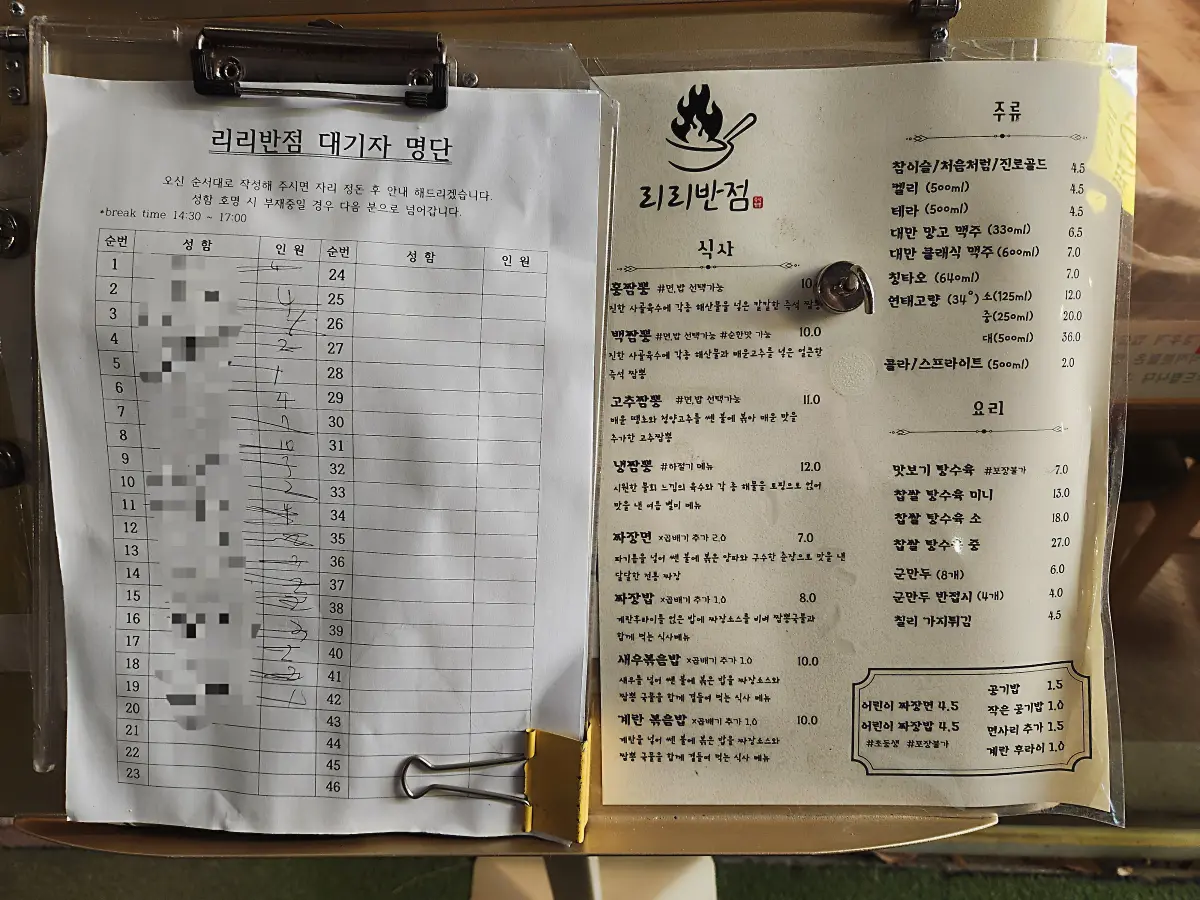 리리반점 대기자 명단
오신 순서대로 작성해 주시면 자리 정돈 후 안내 해드리겠습니다.
성함 호명 시 부재중일 경우 다음 분으로 넘어갑니다.
*break time 14:30 ~ 17:00
순번 성 함 인 원 순번 성 함 인 원
1 4 24
2 4 25
3 26
4 2 27
5 1 28
6 4 29
7 2 30
8 10 31
9 3 32
10 2 33
11 34
12 35
13 3 36
14 2 37
15 38
16 3 39
17 2 40
18 41
19 42
20 43
21 44
22 45
23 46
리리반점
식사
홍짬뽕 #면,밥 선택가능
진한 사골육수에 각종 해산물을 넣은 칼칼한 즉석 짬뽕
백짬뽕 #면,밥 선택가능 #순한맛 가능 10.0
진한 사골육수에 각종 해산물과 매운고추를 넣은 얼큰한
즉석 짬뽕
고추짬뽕 #면,밥 선택가능 11.0
매운 땡초와 청양고추를 쎈 불에 볶아 매운 맛을
추가한 고추짬뽕
냉짬뽕 #하절기 메뉴 12.0
시원한 물회 느낌의 육수와 각 종 해물을 토핑으로 얹어
맛을 낸 여름 별미 메뉴
짜장면 x곱배기 추가 2.0 7.0
파기름을 넣어 쎈 불에 볶은 양파와 구수한 춘장으로 맛을 낸
달달한 전통 짜장
짜장밥 x곱배기 추가 1.0 8.0
계란후라이를 얹은 밥에 짜장소스를 비벼 짬뽕국물과
함께 먹는 식사메뉴
새우볶음밥 x곱배기 추가 1.0 10.0
새우를 넣어 쎈 불에 볶은 밥을 짜장소스와
짬뽕 국물을 함께 곁들여 먹는 식사 메뉴
계란 볶음밥 x곱배기 추가 1.0 10.0
계란을 넣어 쎈 불에 볶은 밥을 짜장소스와
짬뽕 국물을 함께 곁들여 먹는 식사 메뉴
주류
참이슬/처음처럼/진로골드 4.5
켈리 (500ml) 4.5
테라 (500ml) 4.5
대만 망고 맥주 (330ml) 6.5
대만 클래식 맥주 (600ml) 7.0
칭타오 (640ml) 7.0
연태고량 (34°) 소(125ml) 12.0
중(250ml) 20.0
대(500ml) 36.0
콜라/스프라이트 (500ml) 2.0
요리
맛보기 탕수육 #포장불가 7.0
찹쌀 탕수육 미니 13.0
찹쌀 탕수육 소 18.0
찹쌀 탕수육 중 27.0
군만두 (8개) 6.0
군만두 반접시 (4개) 4.0
칠리 가지튀김 4.5
어린이 짜장면 4.5
어린이 짜장밥 4.5
#초등생 #포장불가
공기밥 1.5
작은 공기밥 1.0
면사리 추가 1.5
계란 후라이 1.0